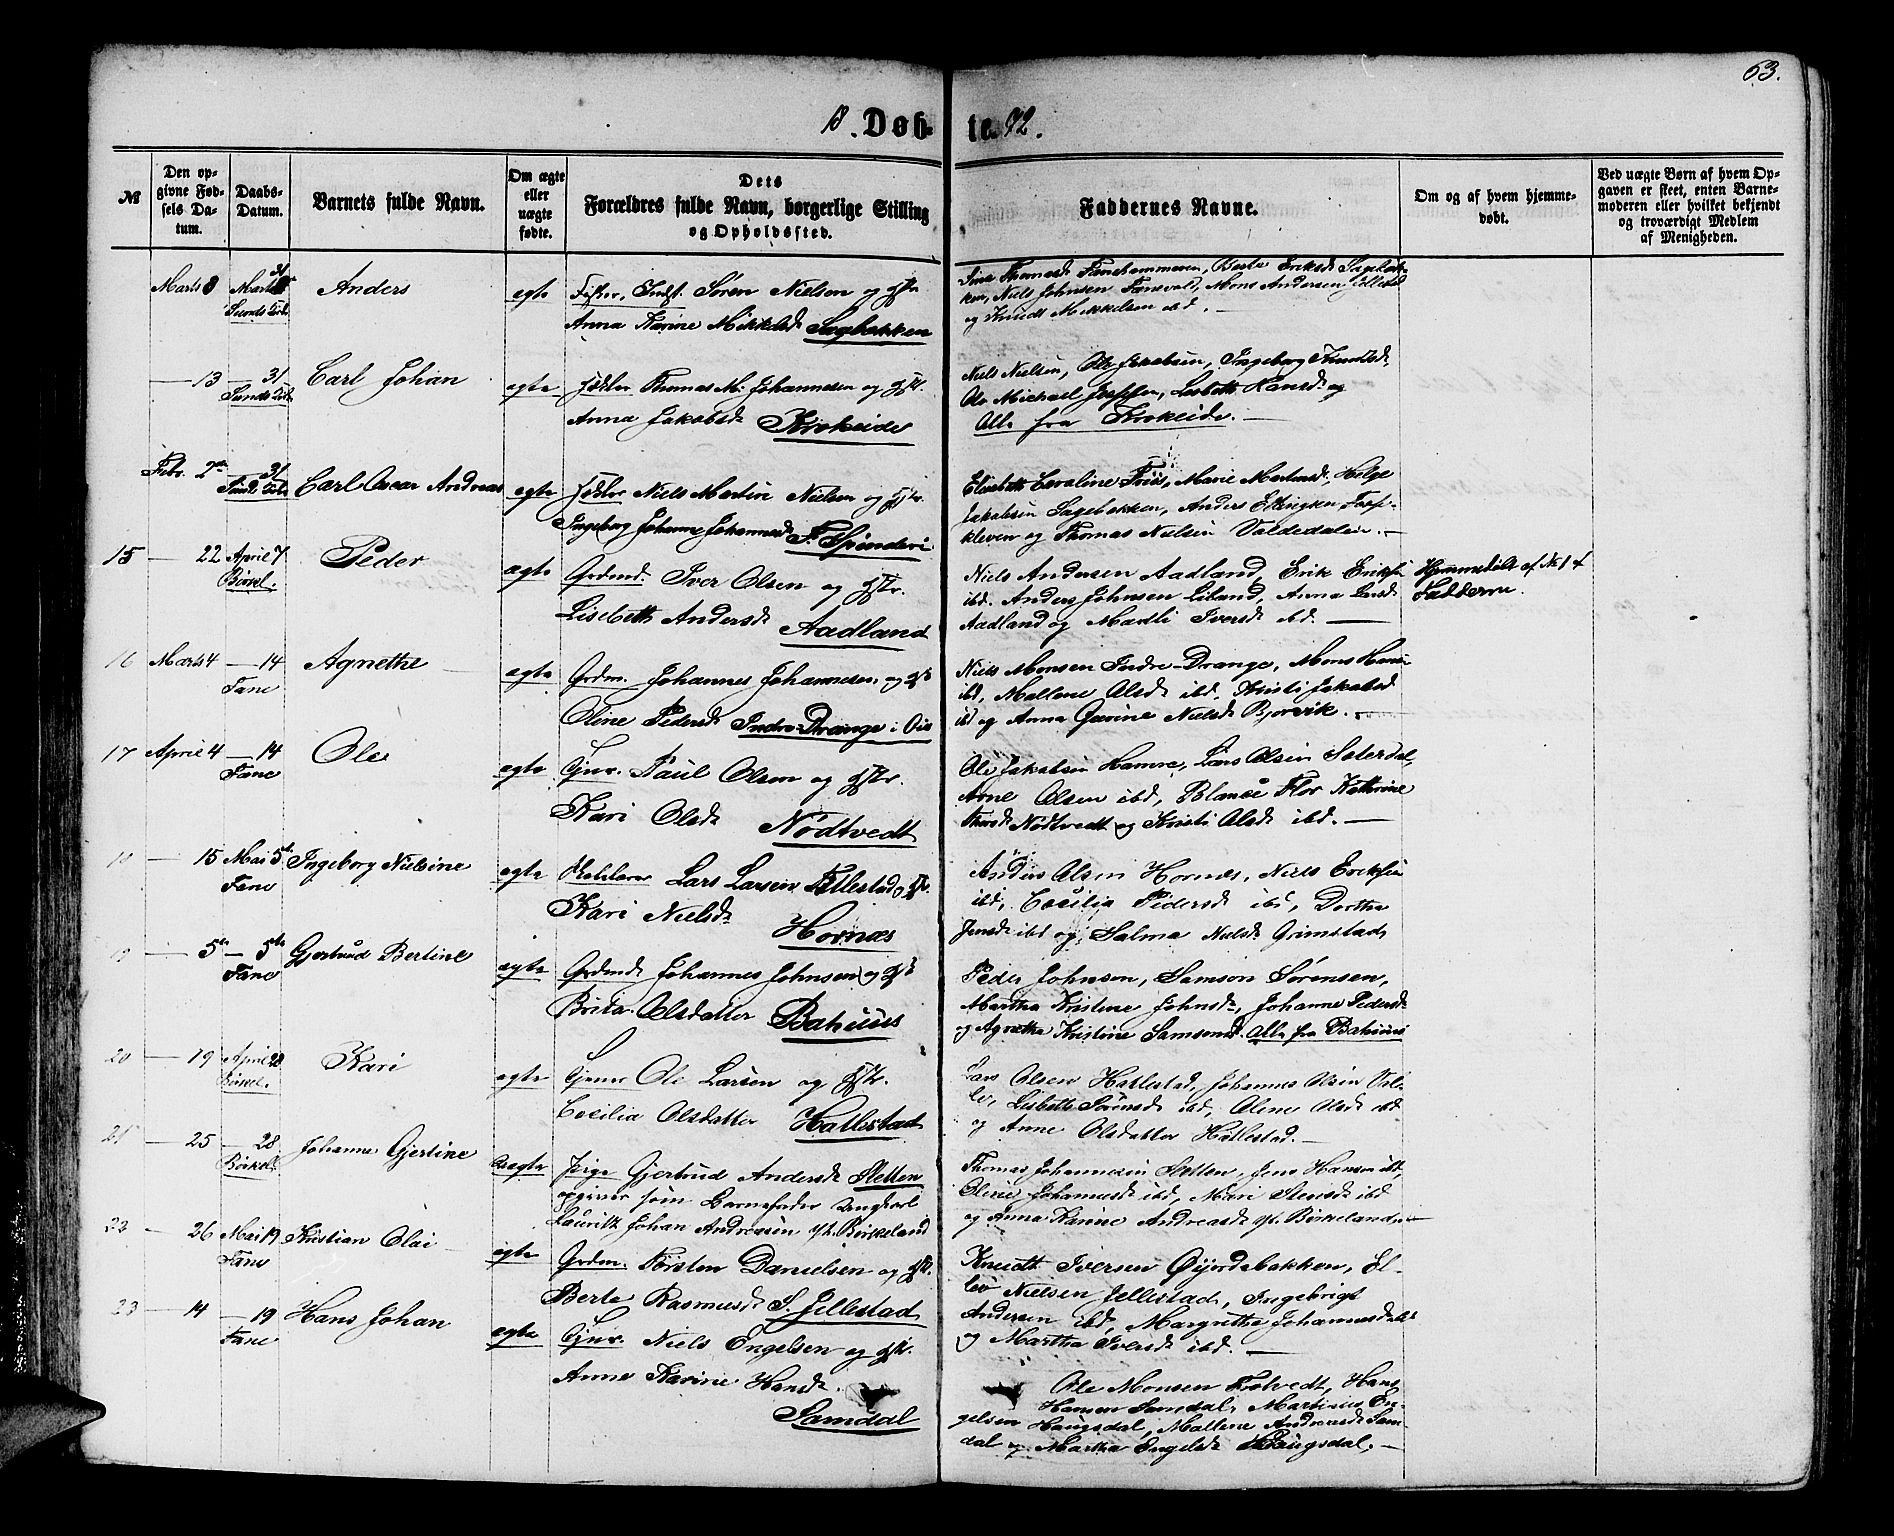 63.
18. Døb- te. 92.
№
Den op-
givne Fød-
sels Da-
tum.
Daabs-
Datum.
Barnets fulde Navn.
Om ægte
eller
uægte
fødte.
Dets
Forældres fulde Navn, borgerlige Stilling
og Opholdssted.
Faddernes Navne.
Om og af hvem hjemme-
døbt.
Ved uægte Børn af hvem Op-
gaven er skeet, enten Barne-
moderen eller hvilket bekjendt
og troværdigt Medlem
af Menigheden.
Marts 8 Marts 31 Anders egte Søren Nielsen og Hstr.
Anna Karine Mikkelsd. Sagebakken
Thomasd. Fanehammeren, Berte Eriksd. Sagebak-
ken, Niels Johnsen Fanevald, Mons Andersen Titlestad
og Knudt Mikkelsen ibd.
— 13 — 31 Carl Johan egte Thomas M. Johannesen og Hstr.
Anna Jakobsd. Krokeide
Niels Nielsen, Ole Jakobsen, Ingeborg Knudtsd.
Ole Michael Josephsen, Lisbeth Hansd. og
Alle fra Krokeide.
Febr. 2den 31 Carl Oscar Andreas egte Niels Martin Nielsen og Hstr.
Ingeborg Johanne Johannesd.
Elisabeth Caroline Friis, Marie Martinsd., Helge
Jakobsen Sagebakken, Anders
kleven og Thomas Nielsen Valdedalen.
15 — 22 April 7 Peder egte Grdmd. Iver Olsen og Hstr.
Birkel.
Lisbeth Andersd. Aadland
Niels Andersen Aadland, Erik Eriksen
ibd. Anders Johnsen Liland, Anna Larsd.
Aadland og Madli Iversd. ibd.
Hjemmedøbt af № 1 af
Fadderne.
16 Marts 4 — 14 Agnethe egte Grdm. Johannes Johannesen og Hst.
Fane
Oline Pedersd. Indre Drange i Oos
Niels Monsen Indre-Drange, Mons Hansen
ibd, Mallene Olsd. ibd, Kristi Jakobsd.
ibd og Anna Gurine Nielsd. Bjorvik.
17 April 4 — 14 Ole egte Gjnr. Paul Olsen og Hstr.
Fane
Kari Olsd. Nødtvedt
Ole Jakobsen Hamre, Lars Olsen Sæterdal,
Arne Olsen ibd, Blanse Flor Kathrine
Nødtvedt og Kristi Olsd. ibd.
18 — 15 Mai 5te Ingeborg Nielsine egte Lars Larsen Titlestad og Hstr.
Fane
Kari Nielsd. Hornæs
Anders Olsen Hornæs, Niels Eriksen
ibd, Cecilia Pedersd. ibd, Dorthea
Jensd. ibd og Salma Nielsd. Grimstad,
19 — 5te — 5te Gjertrud Bertine egte Grdmd. Johannes Johnsen og Hst.
Fane
Brita Olsdatter Bahuus
Peder Johnsen, Samson Sørensen,
Martha Kristine Johnsd., Johanne Pedersd.
og Agnetha Kristine Samsonsd. Alle fra Bahuus
20 — 19 April 28 Kari egte Gjnr Ole Larsen og Hstr.
Birkel.
Cecilia Olsdatter Hatlestad
Lars Olsen Hatlestad, Johannes Olsen
Lisbeth Sørensd. ibd, Oline Olsd. ibd
og Anne Olsdatter Hatlestad.
21 — 25 — 28 Johanne Gjertine uegte Pige Gjertrud Andersd. Sletten
Birkel.
opgiver som Barnefader Ungkarl
Lauritz Johan Andreasen Birkeland
Thomas Johannesen Sletten, Jens Hansen ibd,
Oline Johannesd. ibd, Mari ibd
og Anna Karine Andreasd. Birkeland.
22 — 26 Mai 19 Kristian Olai egte Grdm. Torsten Danielsen og Hstr.
Fane
Berte Rasmusd. S. Jellestad
Knudt Iversen Øijordsbakken, El-
lev Nielsen Jellestad, Ingebrigt
Andersen ibd, Margretha Johannesd. ibd
og Martha Iversd. ibd.
23 — 14 — 19 Hans Johan egte Gjnr. Niels Engelsen og Hstr.
Fane
Anne Karine Hansd.
Samdal
Ole Monsen Totvedt, Hans
Hansen Samdal, Martinus En-
gelsen Haugsdal, Mallene Andreasd. Sam-
dal og Martha Engelsd. Haugsdal.